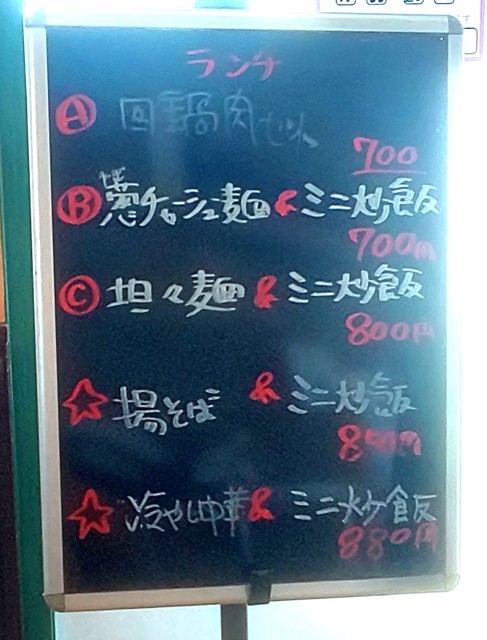 ランチ
Ⓐ 回鍋肉
700
Ⓑ ねぎ葱チャーシュー麺 & ミニ炒飯
700円
Ⓒ 坦々麺 & ミニ炒飯
800円
☆ 揚そば & ミニ炒飯
850円
☆ 冷やし中華 & ミニ炒飯
880円